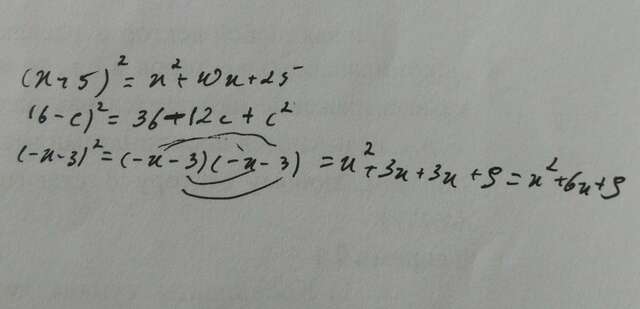 (x+5)² = x² + 10x + 25
(6-c)² = 36 + 12c + c²
(-x-3)² = (-x-3)(-x-3) = x² + 3x + 3x + 9 = x² + 6x + 9